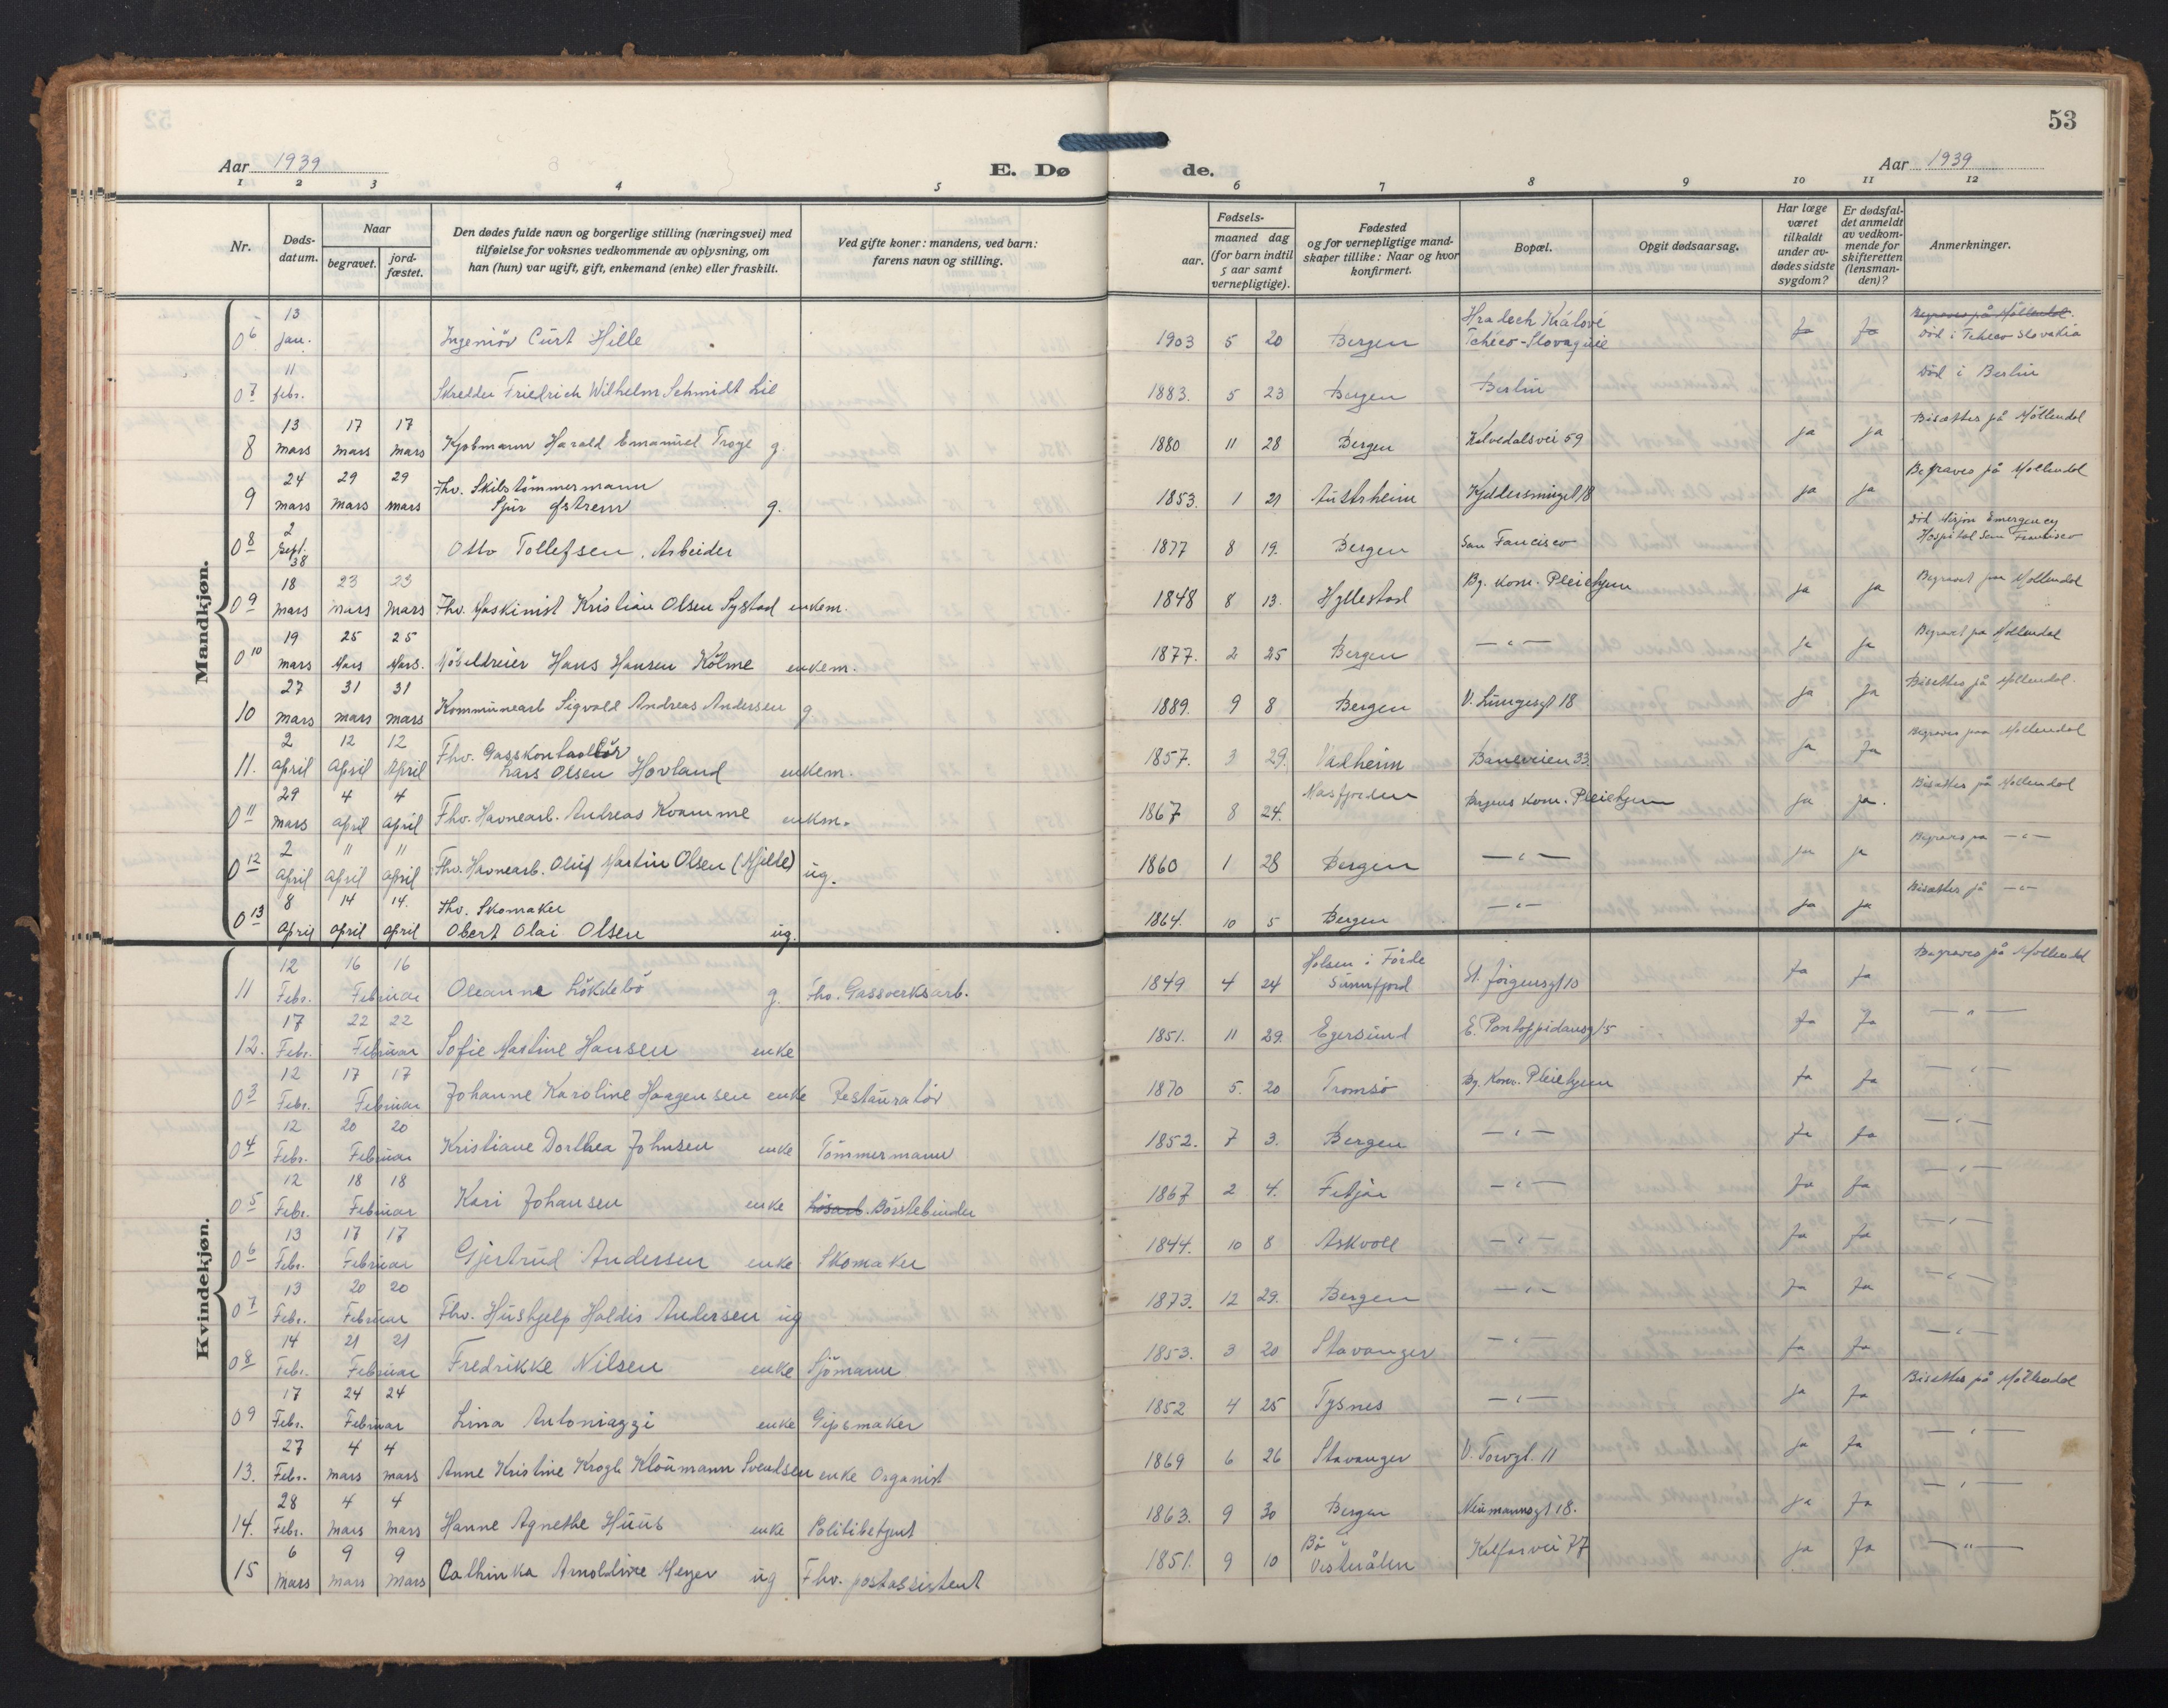 53
Aar 1939
E. Dø de.
Aar 1939
1 2 3 4 5 6 7 8 9 10 11 12
Nr.
Døds-datum.
Naar
begravet.
jord-fæstet.
Den dødes fulde navn og borgerlige stilling (næringsvei) med
tilføielse for voksnes vedkommende av oplysning, om
han (hun) var ugift, gift, enkemand (enke) eller fraskilt.
Ved gifte koner: mandens, ved barn:
farens navn og stilling.
Fødsels-
aar.
maaned dag
(for barn indtil
5 aar samt
vernepligtige).
Fødested
og for vernepligtige mand-
skaper tillike: Naar og hvor
konfirmert.
Bopæl.
Opgit dødsaarsag.
Har læge
været
tilkaldt
under av-
dødes sidste
sygdom?
Er dødsfal-
det anmeldt
av vedkom-
mende for
skifteretten
(lensman-
den)?
Anmerkninger.
Mandkjøn.
06 13 Jan. Ingeniör Curt Hille 1903 5 20 Bergen Hradech Králové Tchéco-Slovaquie Ja Ja Begraves på Möllendal. Död i Tcheco Slovakia
07 11 febr. Friedrich Wilhelm Schmidt Lie 1883. 5 23 Bergen Berlin Död i Berlin
8 13 mars 17 mars 17 mars Kjöbmann Harald Emanuel Troye g. 1880 11 28 Bergen Kalvedalsvei 59 ja ja Bisættes på Möllendal
9 24 mars 29 mars 29 mars Fhv. Skibstömmermann Sjur Østrem g. 1853. 1 21 Austrheim 18 ja ja Begraves på Möllendal
08 2 Sept. 38 Otto Tollefsen, Arbeider 1877 8 19. Bergen San Fancisco Död Emergency Hospital San Francisco
09 18 mars 23 mars 23 mars Fhv. Maskinist Kristian Olsen Systad enkem. 1848 8 13. Hyllestad Bg. kom. Pleiehjem ja ja Begravet paa Möllendal
010 19 mars 25 Mars 25 Mars. Möbeldreier Hans Hansen Kölme enkem. 1877. 2 25 Bergen — " — Ja Ja Begravet paa Möllendal
10 27 mars 31 mars 31 mars Kommunearb Sigvald Andreas Andersen g 1889. 9 8 Bergen V. Lungegt 18 ja Ja Bisættes på Möllendal.
11. 2 April 12 April 12 April Fhv. Gasskontrollör Lars Olsen Hovland enkem. 1857. 3 29. Vadheim Baneveien 33. ja Ja Begraves paa Möllendal
011 29 mars 4 april 4 april Fhv. Havnearb. Andreas Kvamme enkm. 1867 8 24. Masfjorden Bergens kom. Pleiehjem ja ja. Bisættes på Möllendal
012 2 April " April " April Fhv. Havnearb. Oluf Martin Olsen (Mjelle) ug. 1860 1 28 Bergen — " — ja ja Begraves på — " —
013 8 April 14 april 14. april Fhv. Skomaker Obert Olai Olsen ug. 1864. 10 5 Bergen — " — ja ja Bisættes på — " —
Kvindekjøn.
11 12 Febr. 16 16 Februar Oleanne Lökdebö g. Fhv. Gassverksarb. 1849 4 24 Holsen i Förde Sunnfjord St. Jörgensgt 10 Ja ja Begraves på Möllendal
12. 17 Febr. 22 22 Februar Sofie Martine Hansen enke 1851. 11 29. Egersund E. Pontoppidansgt 5 Ja Ja — " —
03 12 Febr. 17 17 Februar Johanne Karoline Haagensen enke Restauratör 1870 5. 20 Tromsö Bg. Kom. Pleiehjem Ja Ja — " —
04 12 Febr. 20 20 Februar Kristiane Dorthea Johnsen enke Tömmermann 1852. 7 3. Bergen — " — Ja Ja — " —
05 12 Febr. 18 18 Februar Kari Johansen enke Lösarb. Börstebinder 1867 2 4. Fitjar — " — Ja Ja — " —
06 13 Febr. 17 17 Februar Gjertrud Andersen enke Skomaker 1844. 10 8 Askvoll — " — Ja Ja — " —
07 13 Febr. 20 20 Februar Fhv. Hushjelp Haldis Andersen ug 1873. 12 29. Bergen — " — Ja Ja — " —
08 14 Febr. 21 21 Februar Fredrikke Nilsen enke Sjömann 1853. 3 20 Stavanger — " — Ja Ja — " —
09 17 Febr. 24 24 Februar Lina Antoniazzi enke Gipsmaker 1852 4 25 Tysnes — " — Ja Ja Bisættes på Möllendal
13. 27 Febr. 4 mars 4 mars Anne Kristine Krogh Kloumann Svendsen enke Organist 1869 6 26 Stavanger V. Torvgt. 11 Ja Ja — " —
14. 28 Febr. 4 Mars 4 Mars Hanne Agnethe Huus enke Politibetjent 1863. 9 30 Bergen Neumannsgt 18. ja Ja — " —
15 6 Mars 9 Mars 9 Mars Cathinka Arnoldine Meyer ug Fhv. postassistent 1851. 9 10 Bö i Vesterålen Kalfarvei 77 ja Ja — " —